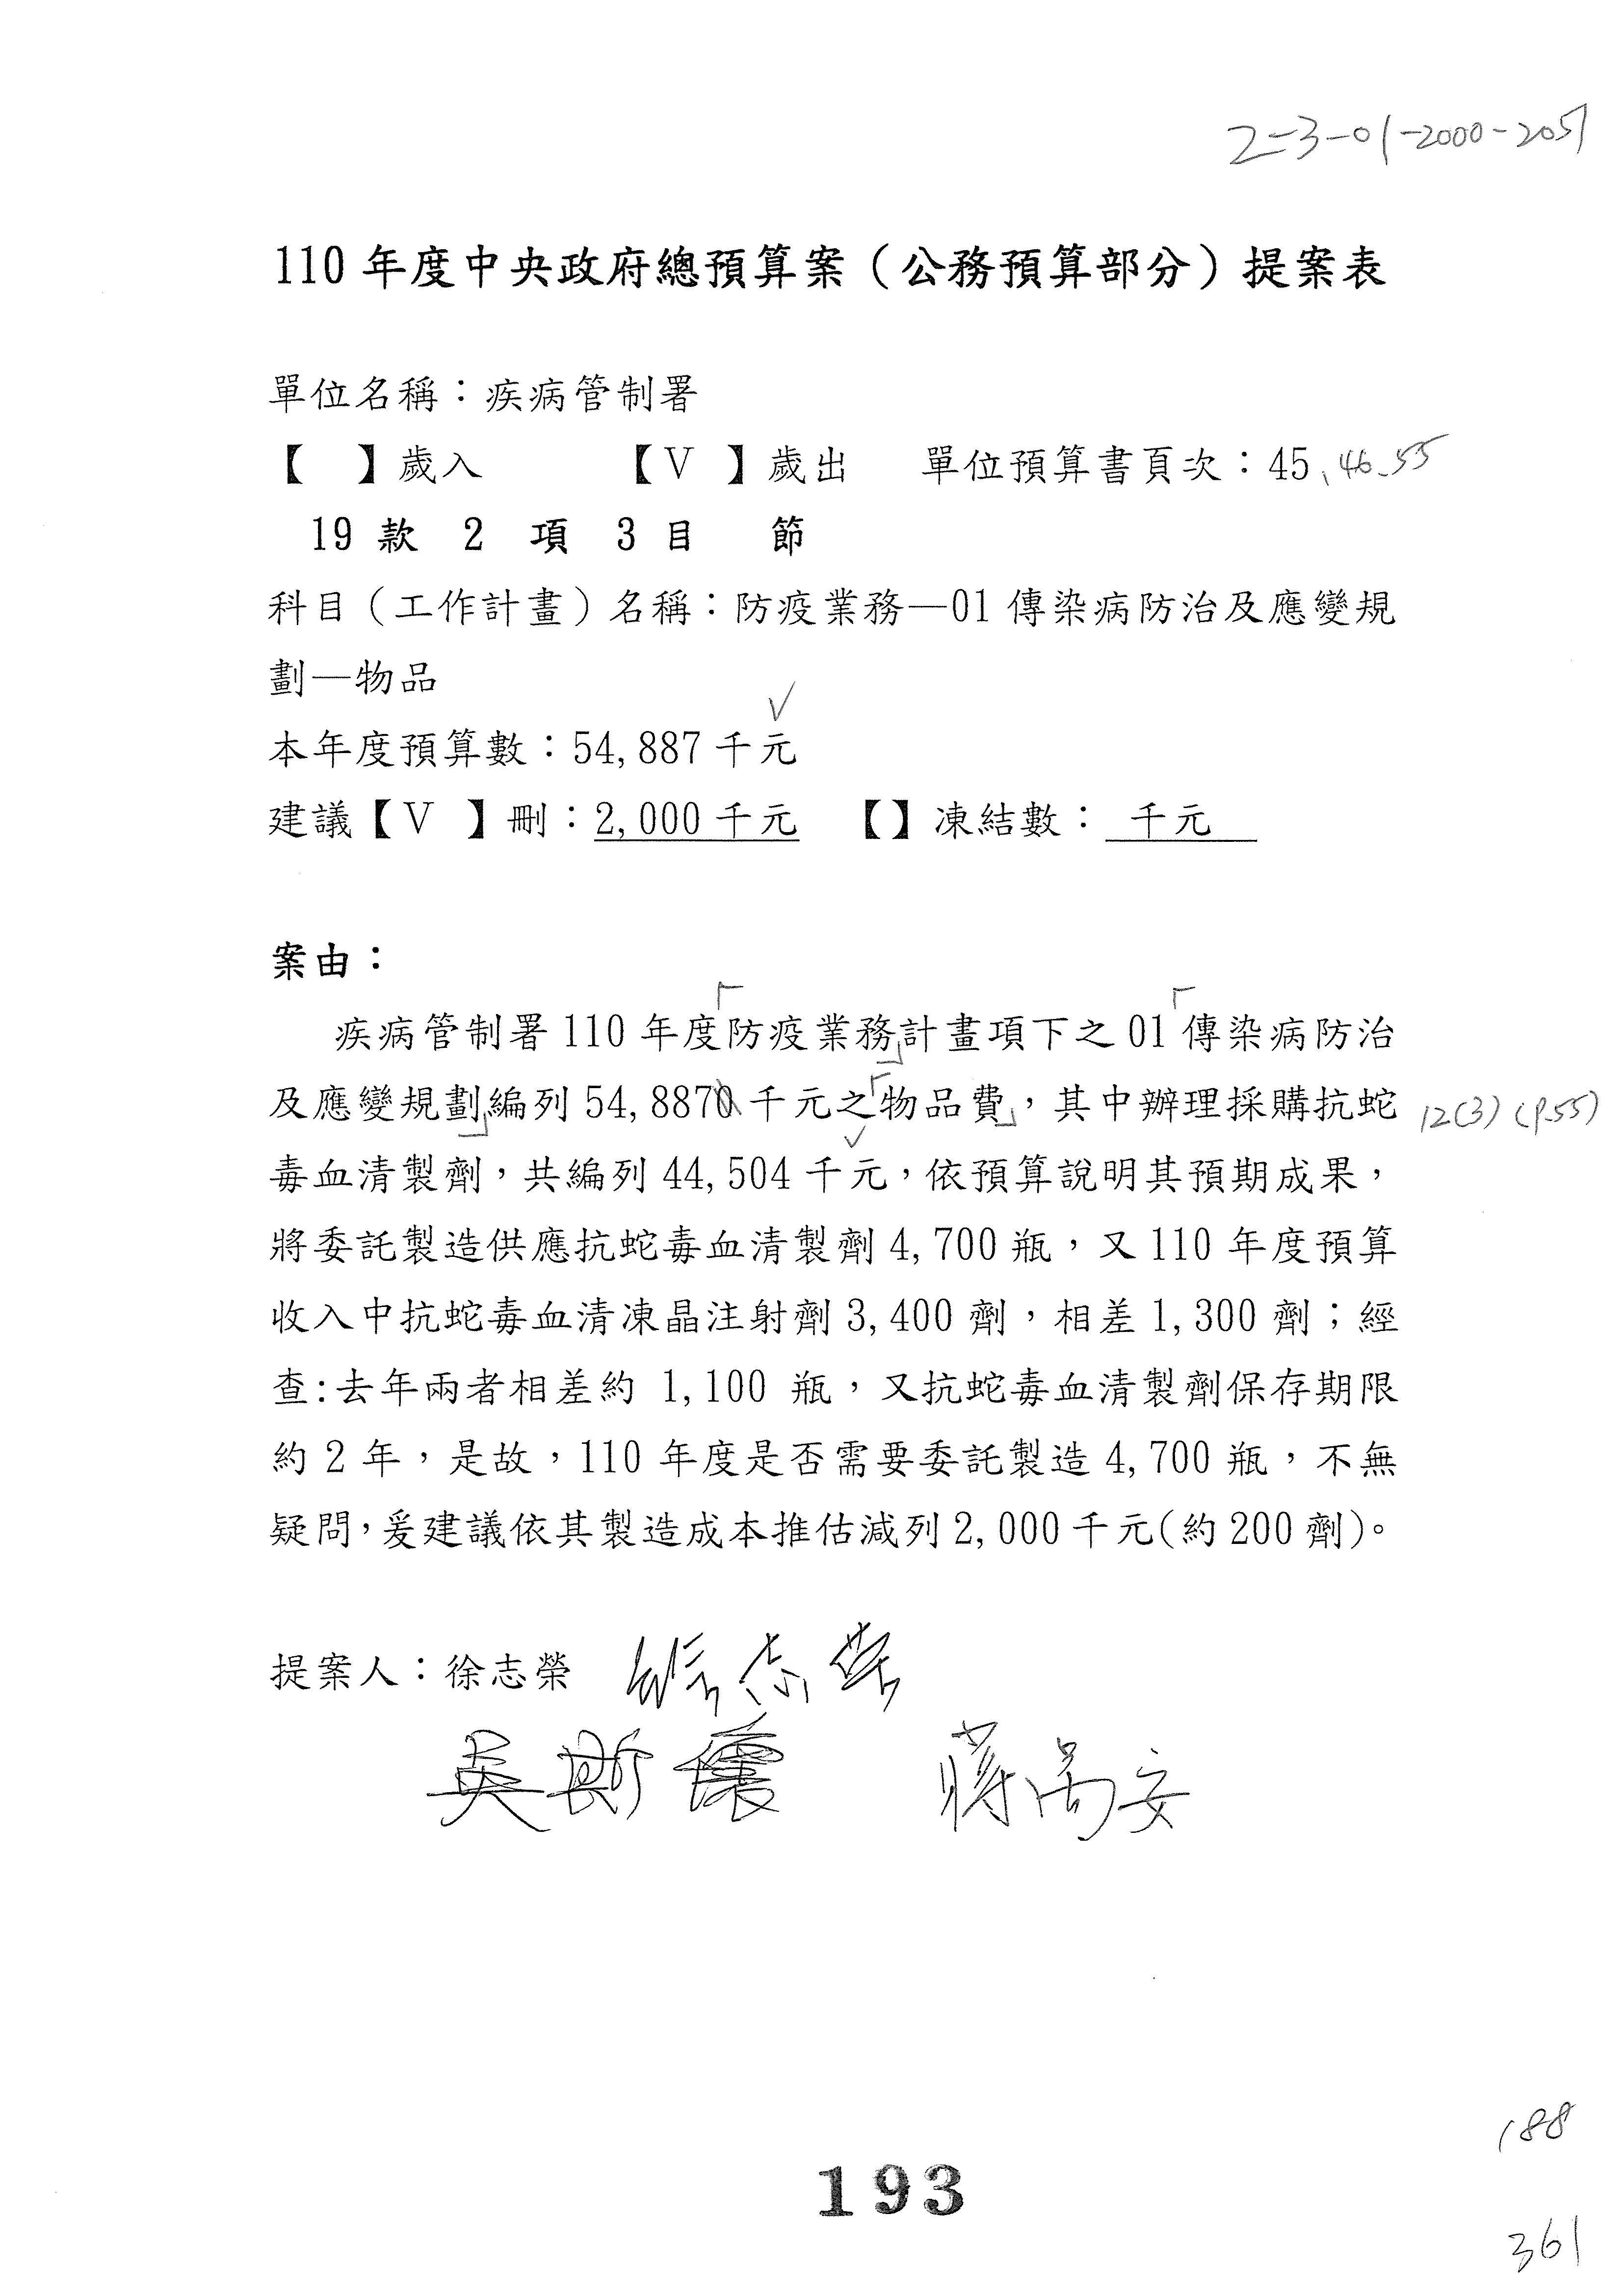 2-3-01-2000-2051
110 年度中央政府總預算案（公務預算部分）提案表
單位名稱：疾病管制署
【　】歲入　　【V 】歲出　單位預算書頁次：45、46、55
19 款 2 項 3 目 節
科目（工作計畫）名稱：防疫業務—01 傳染病防治及應變規
劃—物品
本年度預算數：54,887 千元
建議【V 】刪：2,000 千元　【】凍結數： 千元
案由：
疾病管制署 110 年度「防疫業務」計畫項下之 01「傳染病防治
及應變規劃」編列 54,887 千元之「物品費」，其中辦理採購抗蛇 12(3) (p.55)
毒血清製劑，共編列 44,504 千元，依預算說明其預期成果，
將委託製造供應抗蛇毒血清製劑 4,700 瓶，又 110 年度預算
收入中抗蛇毒血清凍晶注射劑 3,400 劑，相差 1,300 劑；經
查:去年兩者相差約 1,100 瓶，又抗蛇毒血清製劑保存期限
約 2 年，是故，110 年度是否需要委託製造 4,700 瓶，不無
疑問，爰建議依其製造成本推估減列 2,000 千元(約 200 劑)。
提案人：徐志榮 徐志榮
吳斯懷 蔣萬安
188
193
361